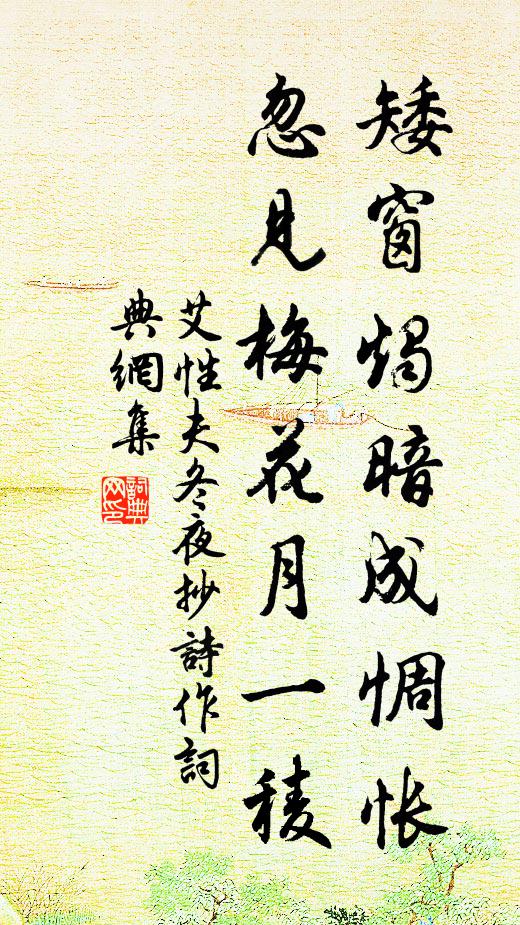 矮窗燭暗成惆悵
忽見梅花月一稜
艾性夫冬夜抄詩作詞
典網集
詞典網印